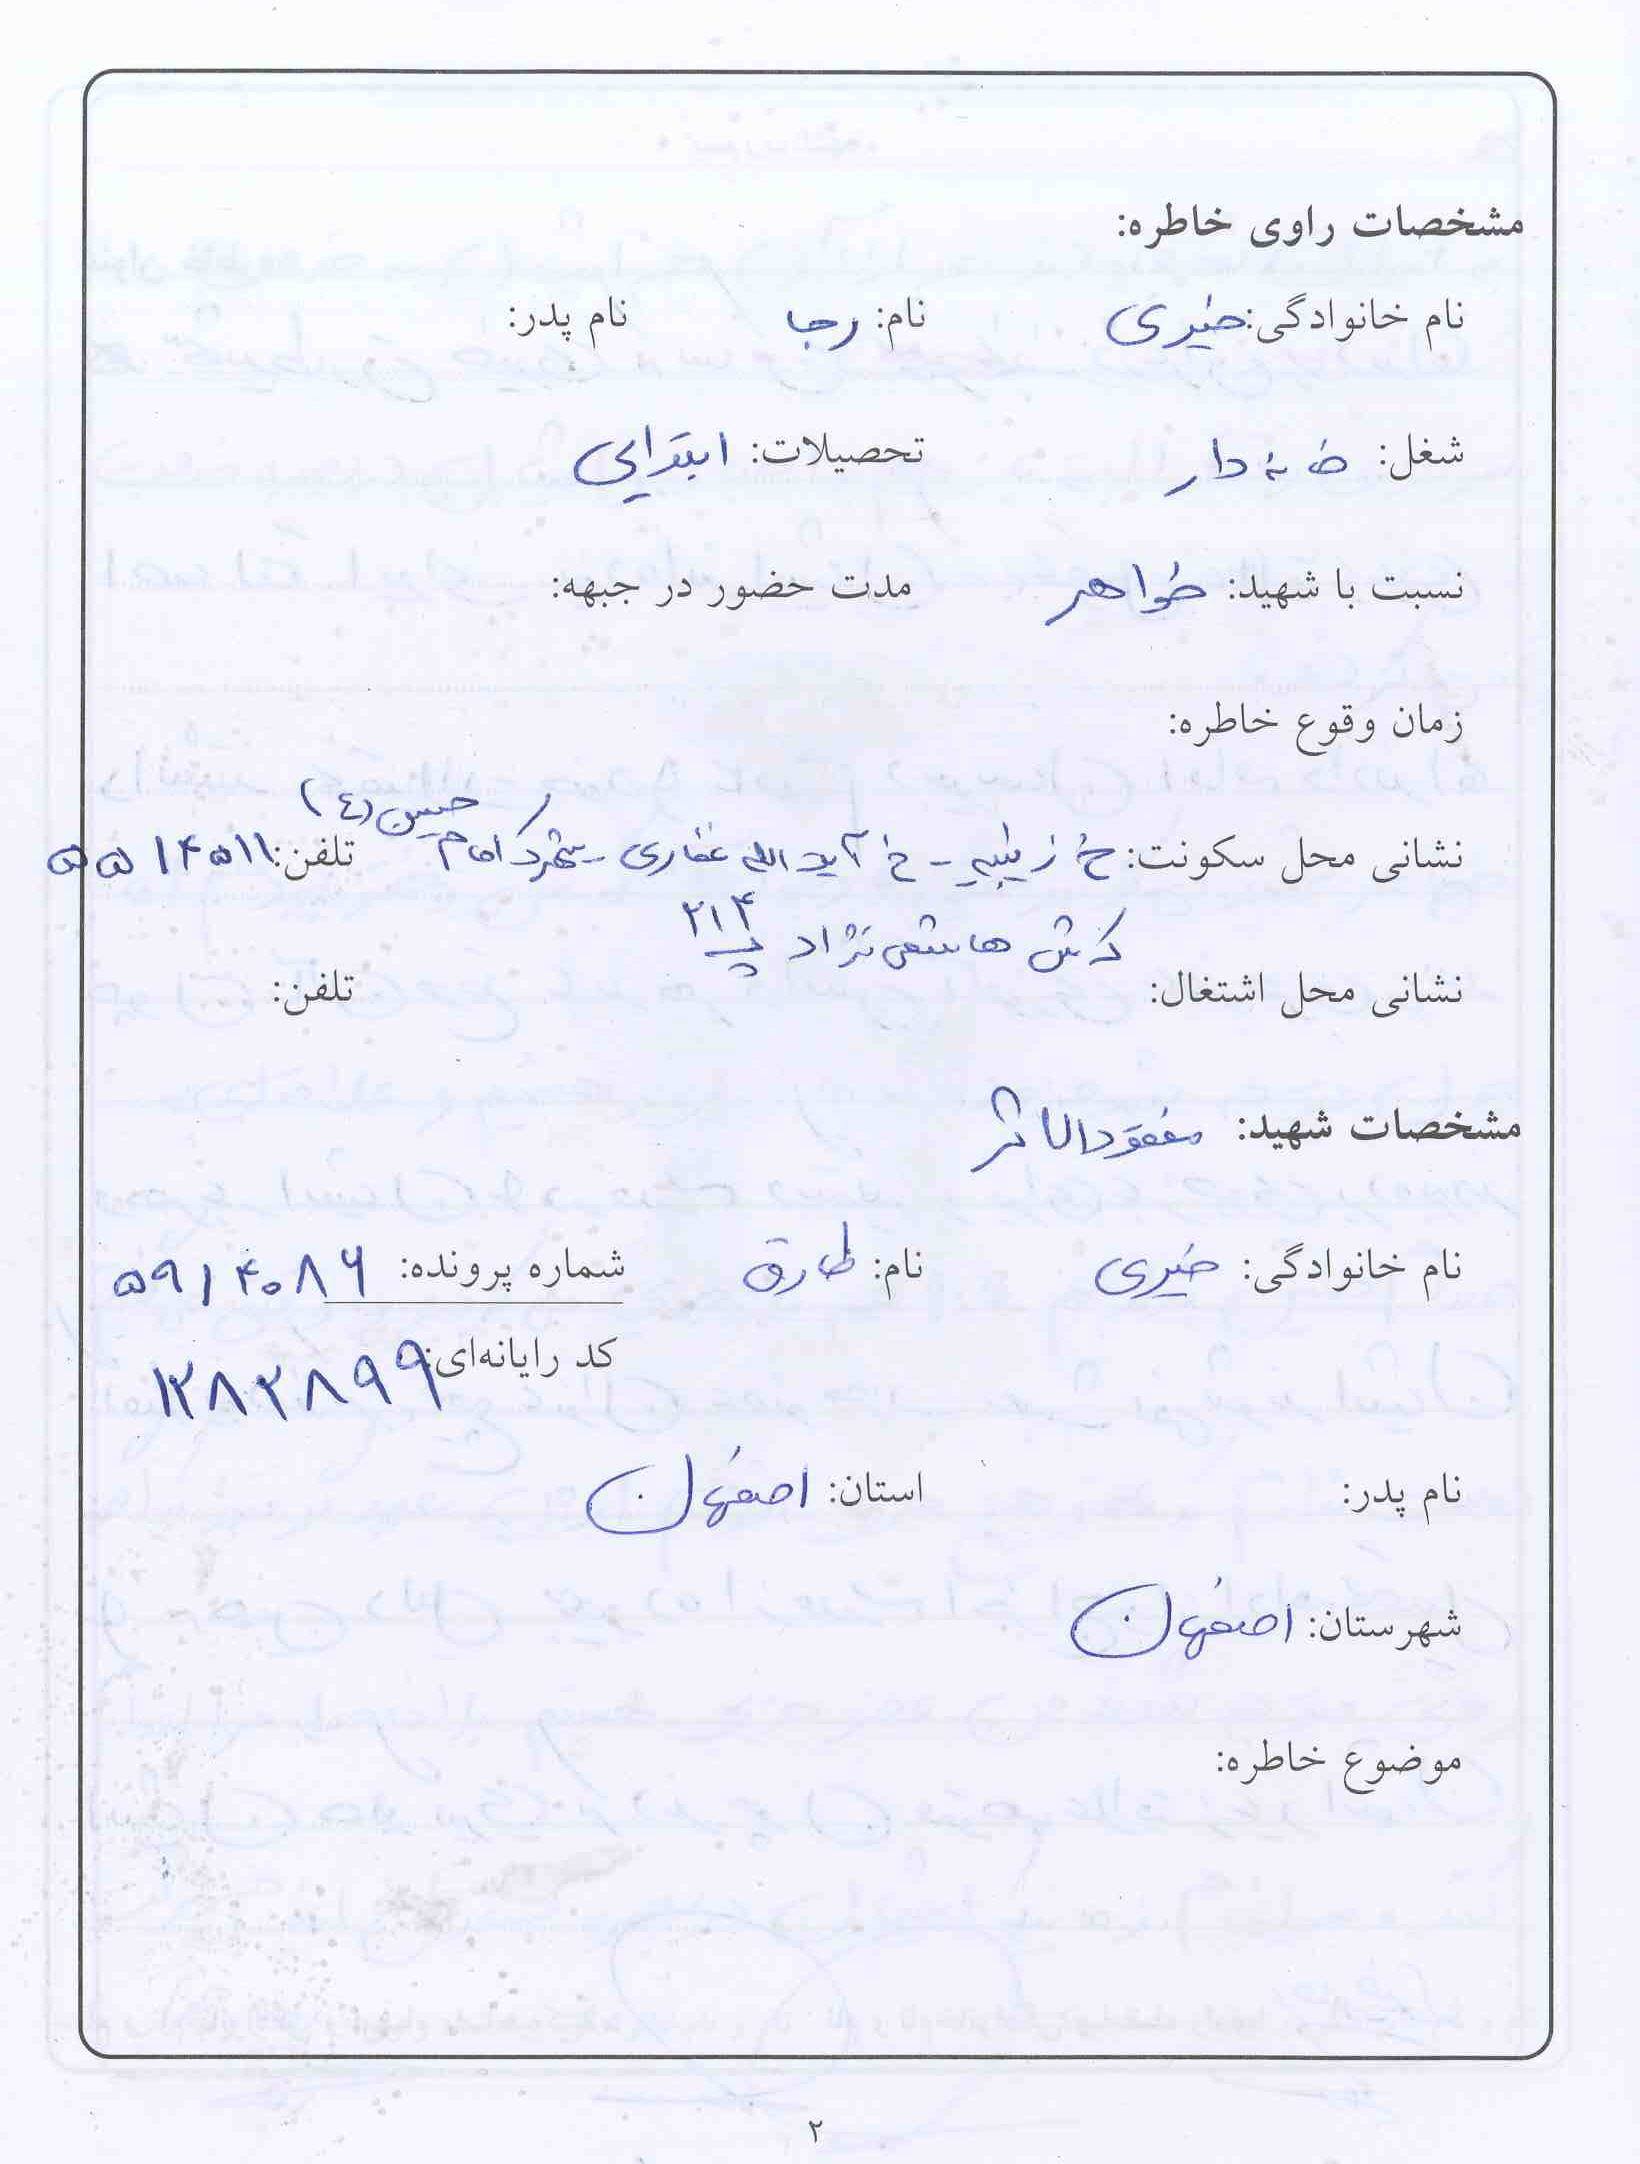 مشخصات راوی خاطره:
نام خانوادگی: خیری نام: رجا نام پدر:
شغل: خانه دار تحصیلات: ابتدایی
نسبت با شهید: خواهر مدت حضور در جبهه:
زمان وقوع خاطره:
نشانی محل سکونت: خ زینبیه - خ آیت الله غفاری - شهرک امام حسین (ع) تلفن: ۵۵۱۴۵۱۱
هاشمی نژاد پ ۲۱۴
نشانی محل اشتغال: تلفن:
مشخصات شهید: مفقودالاثر
نام خانوادگی: خیری نام: طارق شماره پرونده: ۵۹۱۴۰۸۶
کد رایانه‌ای: ۱۲۸۲۸۹۹
نام پدر: استان: اصفهان
شهرستان: اصفهان
موضوع خاطره:
۲